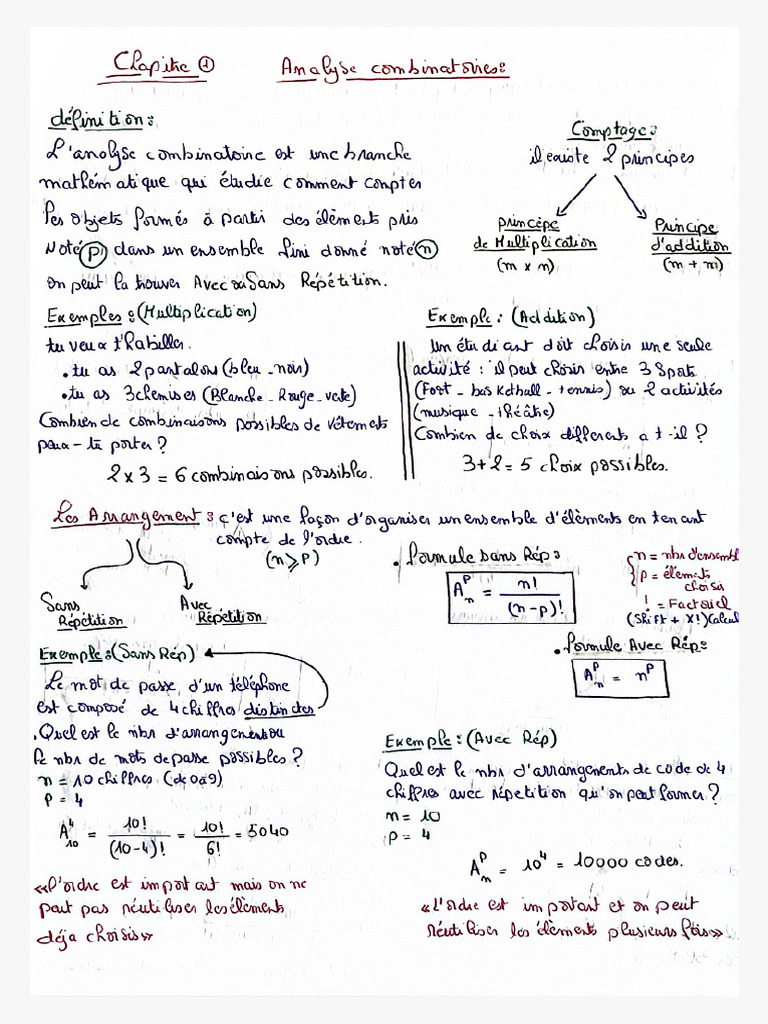 Chapitre ① Analyse combinatoires:
définition:
L'analyse combinatoire est une branche
mathématique qui étudie comment conptes
les objets formés à partir des élèments pris
Noté (p), dans un ensemble fini donné noté (n)
on peut la trouver Avec ou Sans Répétition.
Comptage:
il existe 2 principes
Principe
de Multiplication
(m x n)
Principe
d'addition
(m + n)
Exemples : (Multiplication)
tu veux t'habiller.
• tu as 2 pantalons (bleu - noir)
• tu as 3 chemises (Blanche - Rouge - verte)
Combien de combinaisons possibles de vêtements
peux-tu porter ?
2 x 3 = 6 combinaisons possibles.
Exemple : (Addition)
un étudiant doit choisir une seule
activité : il peut choisir entre 3 Sports
(Foot - basketball - tennis) ou 2 activités
(musique - théâtre)
Combien de choix différents a t-il ?
3 + 2 = 5 choix possibles.
Les Arrangement : c'est une façon d'organiser un ensemble d'élèments en tenant
compte de l'ordre.
(n ⩾ p)
Sans
Répétition
Avec
Répétition
• formule sans Rép :
A_n^p = n! / (n-p)!
n = nbr d'ensembl
p = élements
choisis
! = Factoriel
(Shift + X!) Calcul
• formule Avec Rép:
A_n^p = n^p
Exemple : (Sans Rép)
Le mot de passe d'un téléphone
est composé de 4 chiffres distinctes
. Quel est le nbr d'arrangement ou
le nbr de mots de passe possibles ?
n = 10 chiffres (de 0 à 9)
P = 4
A_10^4 = 10! / (10-4)! = 10! / 6! = 5040
«l'ordre est important mais on ne
peut pas réutiliser les éléments
déja choisis»
Exemple : (Avec Rép)
Quel est le nbr d'arrangements de code de 4
chiffres avec répetition qu'on peut former ?
n = 10
p = 4
A_n^p = 10^4 = 10000 codes.
«L'ordre est important et on peut
réutiliser les élèments plusieurs fois»